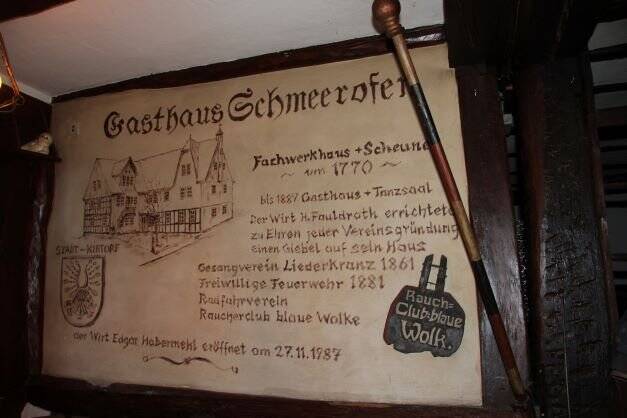 Gasthaus Schmeerofen
Fachwerkhaus + Scheune
~ um 1770 ~
bis 1887 Gasthaus + Tanzsaal
Der Wirt H. Fauldroth errichtete
zu Ehren jeder Vereinsgründung
einen Giebel auf sein Haus
STADT - KIRTORF
Gesangverein Liederkranz 1861
Freiwillige Feuerwehr 1881
Radfahrverein
Raucherclub blaue Wolke
Rauch=
Club=blaue
Wolk.
der Wirt Edgar Habermehl eröffnet am 27.11.1987